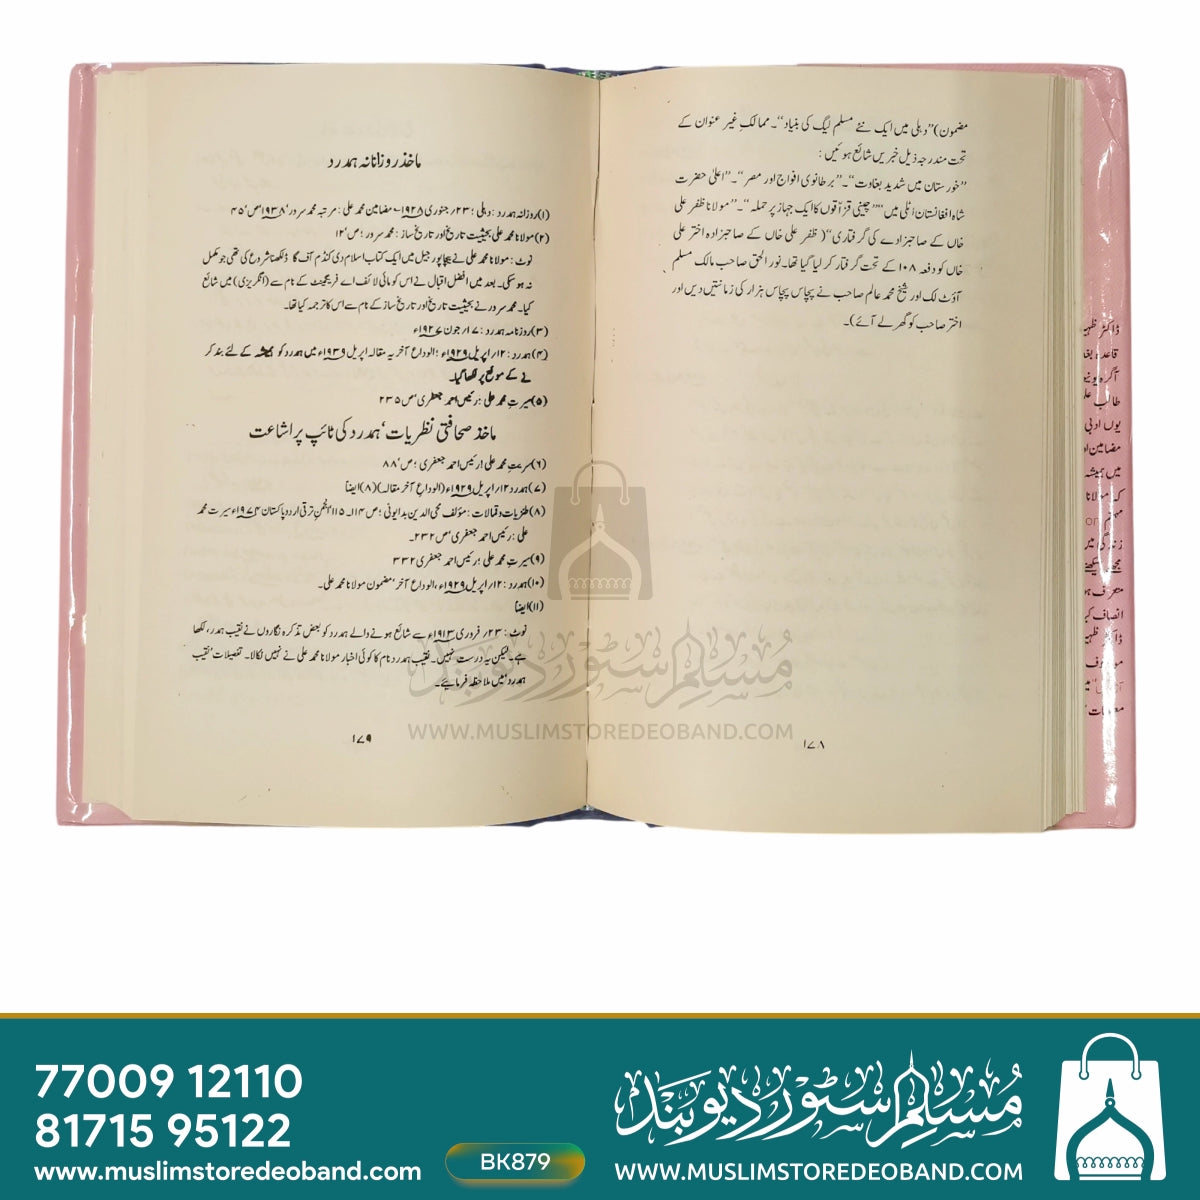 مضمون)"دہلی میں ایک نئے مسلم لیگ کی بنیاد"۔ ممالکِ غیر عنوان کے
تحت مندرجہ ذیل خبریں شائع ہوئیں:
"خورستان میں شدید بغاوت"۔"برطانوی افواج اور مصر"۔"اعلیٰ حضرت
شاہ افغانستان اٹلی میں""چینی قزّاقوں کا ایک جہاز پر حملہ"۔"مولانا ظفر علی
خاں کے صاحبزادے کی گرفتاری"(ظفر علی خاں کے صاحبزادہ اختر علی
خاں کو دفعہ ۱۰۸ کے تحت گرفتار کر لیا گیا تھا۔ نور الحق صاحب مالک مسلم
آؤٹ لک اور شیخ محمد عالم صاحب نے پچاس پچاس ہزار کی زمانتیں دیں اور
اختر صاحب کو گھر لے آئے)۔
۱۷۸
ماخذ روزانانہ ہمدرد
(۱) روزانہ ہمدرد: دہلی؛ ۲۳؍ جنوری ۱۹۲۸ء مضامین محمد علی: مرتبہ محمد سرور' ۱۹۳۸ء ص' ۴۵
(۲) مولانا محمد علی بحیثیت تاریخ اور تاریخ ساز: محمد سرور؛ ص' ۱۲
نوٹ: مولانا محمد علی نے بیجاپور جیل میں ایک کتاب اسلام دی کنڈم آف گاڈ لکھنا شروع کی تھی جو مکمل
نہ ہو سکی۔ بعد میں افضل اقبال نے اس کو مائی لائف اے فریگمینٹ کے نام سے (انگریزی) میں شائع
کیا۔ محمد سرور نے بحیثیت تاریخ اور تاریخ ساز کے نام سے اس کا ترجمہ کیا تھا۔
(۳) روزنامہ ہمدرد: ۱۷؍ جون ۱۹۲۷ء
(۴) ہمدرد: ۱۲؍ اپریل ۱۹۲۹ء؛ الوداع آخر یہ مقالہ اپریل ۱۹۳۹ء میں ہمدرد کو ہمیشہ کے لئے بند کر
نے کے موقع پر لکھا گیا۔
(۵) سیرتِ محمد علی؛ رئیس احمد جعفری' ص ۲۳۵
ماخذ صحافتی نظریات' ہمدرد کی ٹائپ پر اشاعت
(۶) سیرتِ محمد علی؛ رئیس احمد جعفری؛ ص' ۸۸
(۷) ہمدرد ۱۲؍ اپریل ۱۹۲۹ء (الوداعِ آخر مقالہ) (۸) ایضاً
(۸) طنزیات و مقالات: مؤلف محی الدین بدایونی؛ ص ۱۱۴۔۱۱۵ انجمن ترقی اردو پاکستان ۱۹۷۴ء سیرت محمد
علی: رئیس احمد جعفری' ص ۲۳۲۔
(۹) سیرتِ محمد علی؛ رئیس احمد جعفری ۳۳۲
(۱۰) ہمدرد: ۱۲؍ اپریل ۱۹۲۹ء، الوداعِ آخر' مضمون مولانا محمد علی۔
(۱۱) ایضاً
نوٹ: ۲۳؍ فروری ۱۹۱۳ء سے شائع ہونے والے ہمدرد کو بعض تذکرہ نگاروں نے نقیب ہمدر، لکھا
ہے۔ لیکن یہ درست نہیں۔ نقیب ہمدرد نام کا کوئی اخبار مولانا محمد علی نے نہیں نکالا۔ تفصیلات 'نقیب
ہمدرد' میں ملاحظہ فرمائیے۔
۱۷۹
مسلم سٹور دیوبند
WWW.MUSLIMSTOREDEOBAND.COM
77009 12110
81715 95122
www.muslimstoredeoband.com
BK879
مسلم سٹور دیوبند
WWW.MUSLIMSTOREDEOBAND.COM